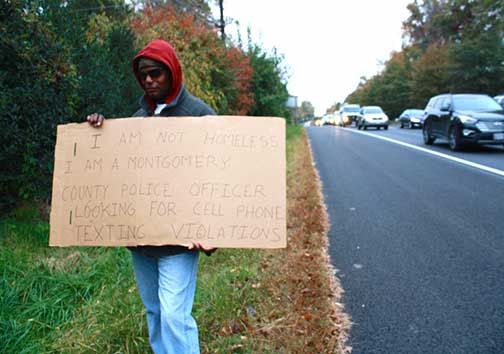 I AM NOT HOMELESS
I AM A MONTGOMERY
COUNTY POLICE OFFICER
LOOKING FOR CELL PHONE
TEXTING VIOLATIONS